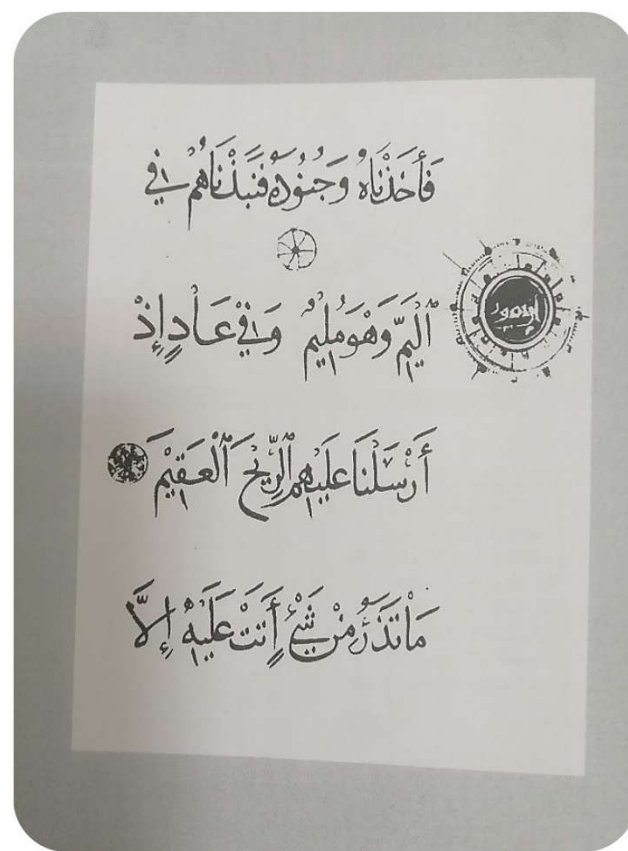 فَأَخَذْنَاهُ وَجُنُودَهُ فَنَبَذْنَاهُمْ فِي
ٱلْيَمِّ وَهْوَ مُلِيمٌ وَفِي عَادٍ إِذْ
أَرْسَلْنَا عَلَيْهِمُ ٱلرِّيحَ ٱلْعَقِيْمَ
مَا تَذَرُ مِنْ شَيْءٍ أَتَتْ عَلَيْهِ إِلَّا